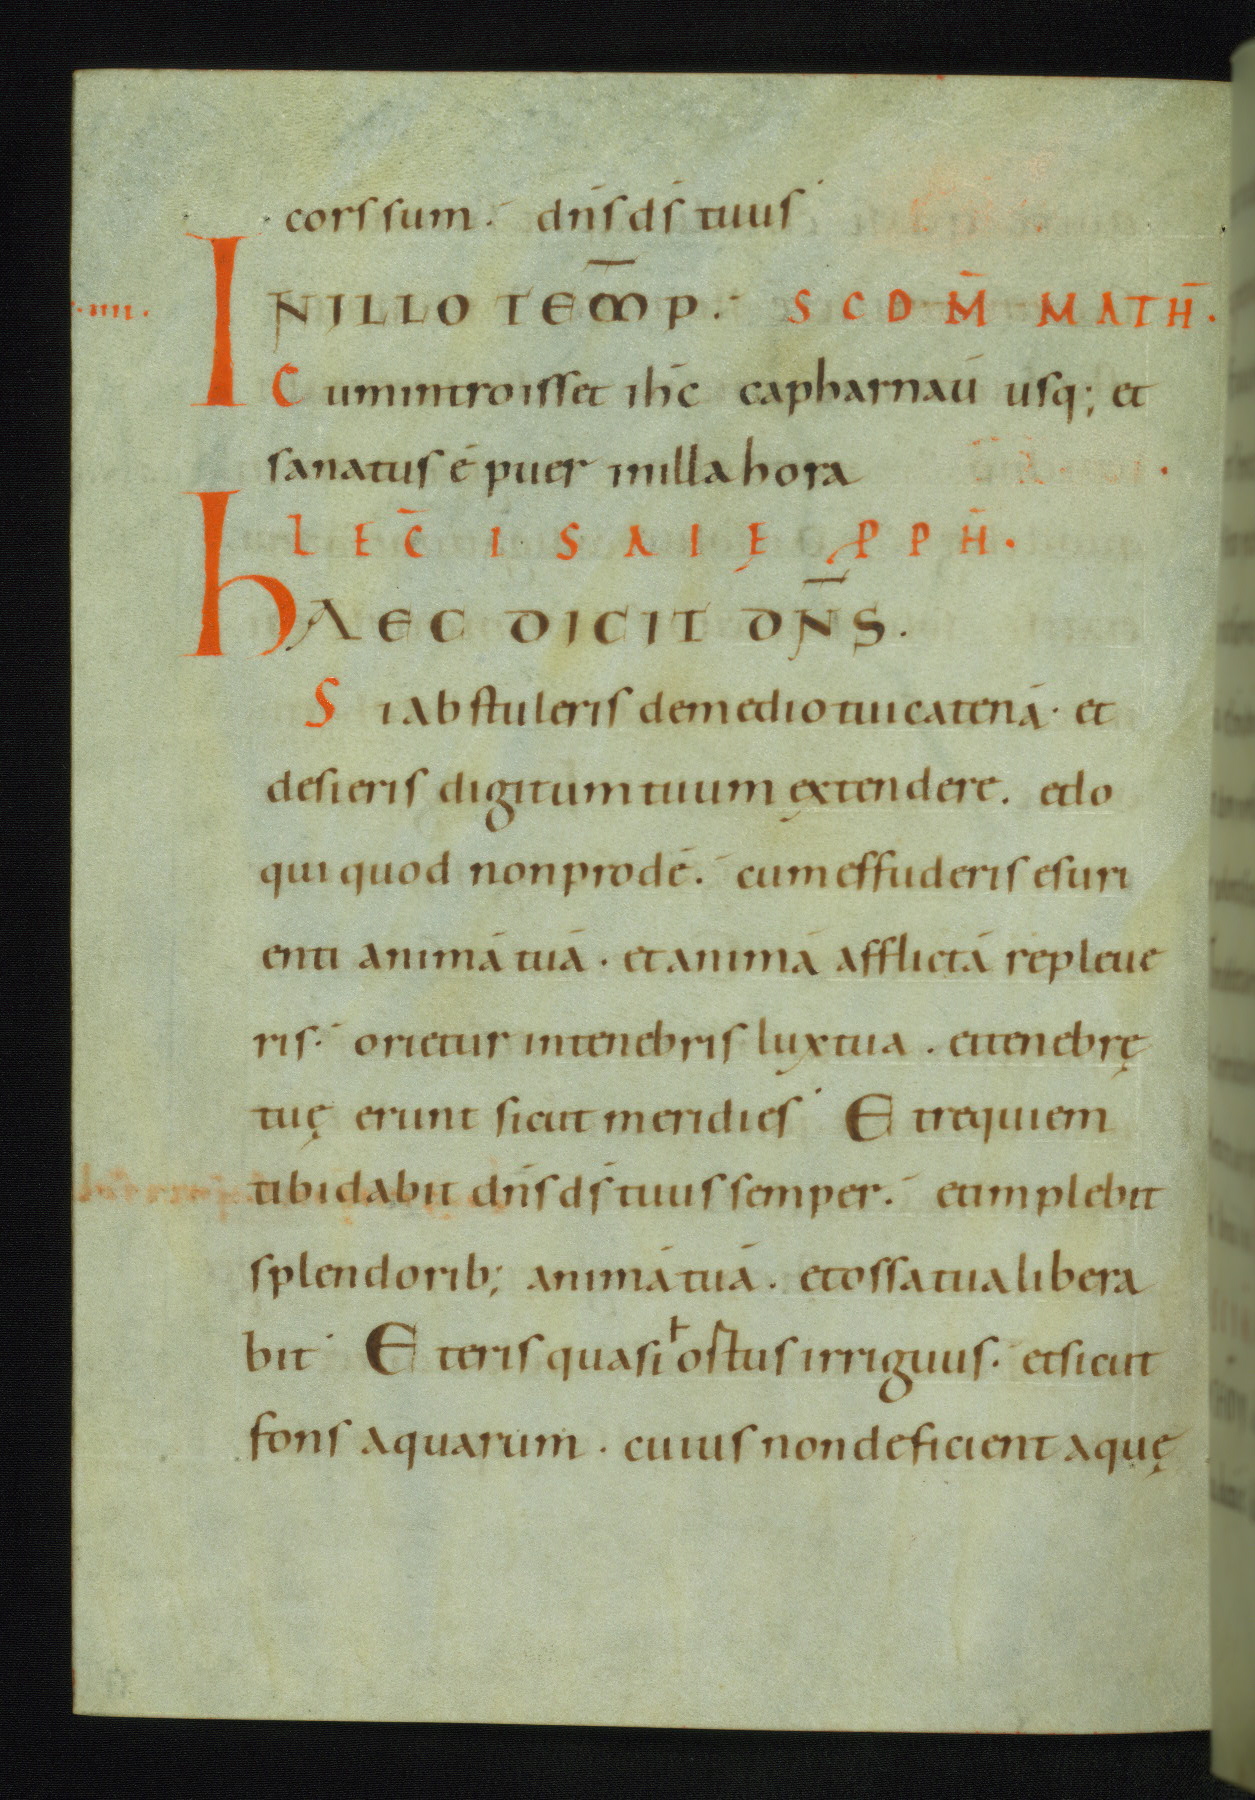 corssum. dn̄s ds̄ tuus
INILLO TEM̄P. SCDM̄ MATH̄.
·IIII·
Cumintroisset ih̄c capharnaū usq; et
sanatus ē puer inilla hora
LEC̄ ISAIĘ PPH̄.
hAEC DICIT DN̄S.
Si abstuleris demediotui catenā· et
desieris digitum tuum extendere. etlo
qui quod nonprodē. cum effuderis esuri
enti animā tuā· et animā afflictā repleue
ris. orietur intenebris lux tua. et tenebrę
tuę erunt sicut meridies Et requiem
tibi dabit dn̄s ds̄ tuus semper. et implebit
splendorib; animā tuā. et ossa tua libera
bit Et eris quasi ⱶostus irriguus. et sicut
fons aquarum. cuius non deficient aquę